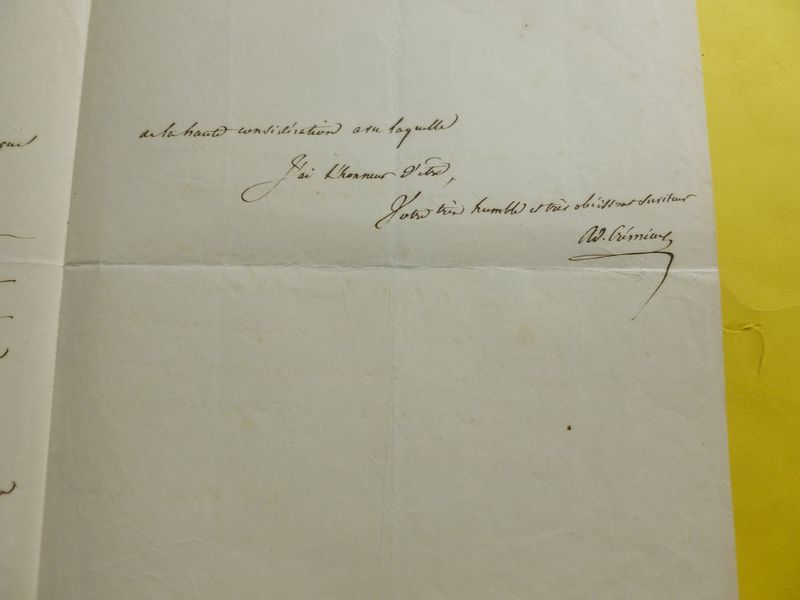 de la haute considération avec laquelle
J'ai l'honneur d'être,
Votre très humble et très obéissant serviteur
Ad. Crémieux